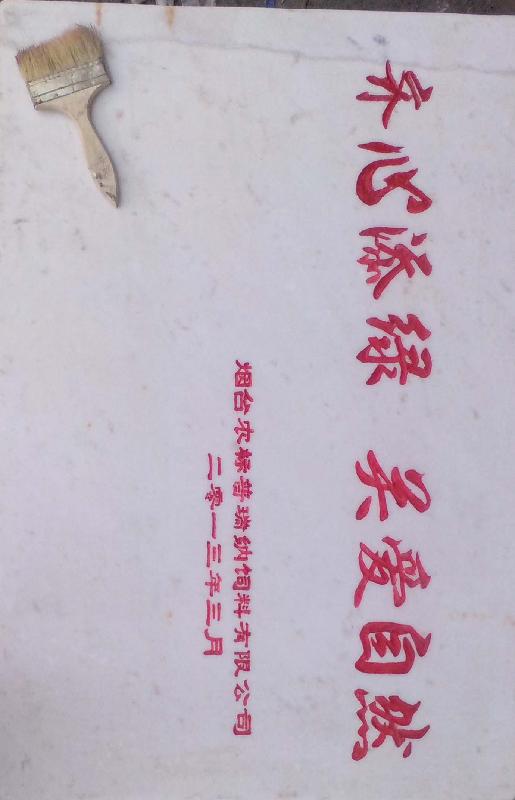 齐心添绿 关爱自然
烟台农标普瑞纳饲料有限公司
二零一三年三月